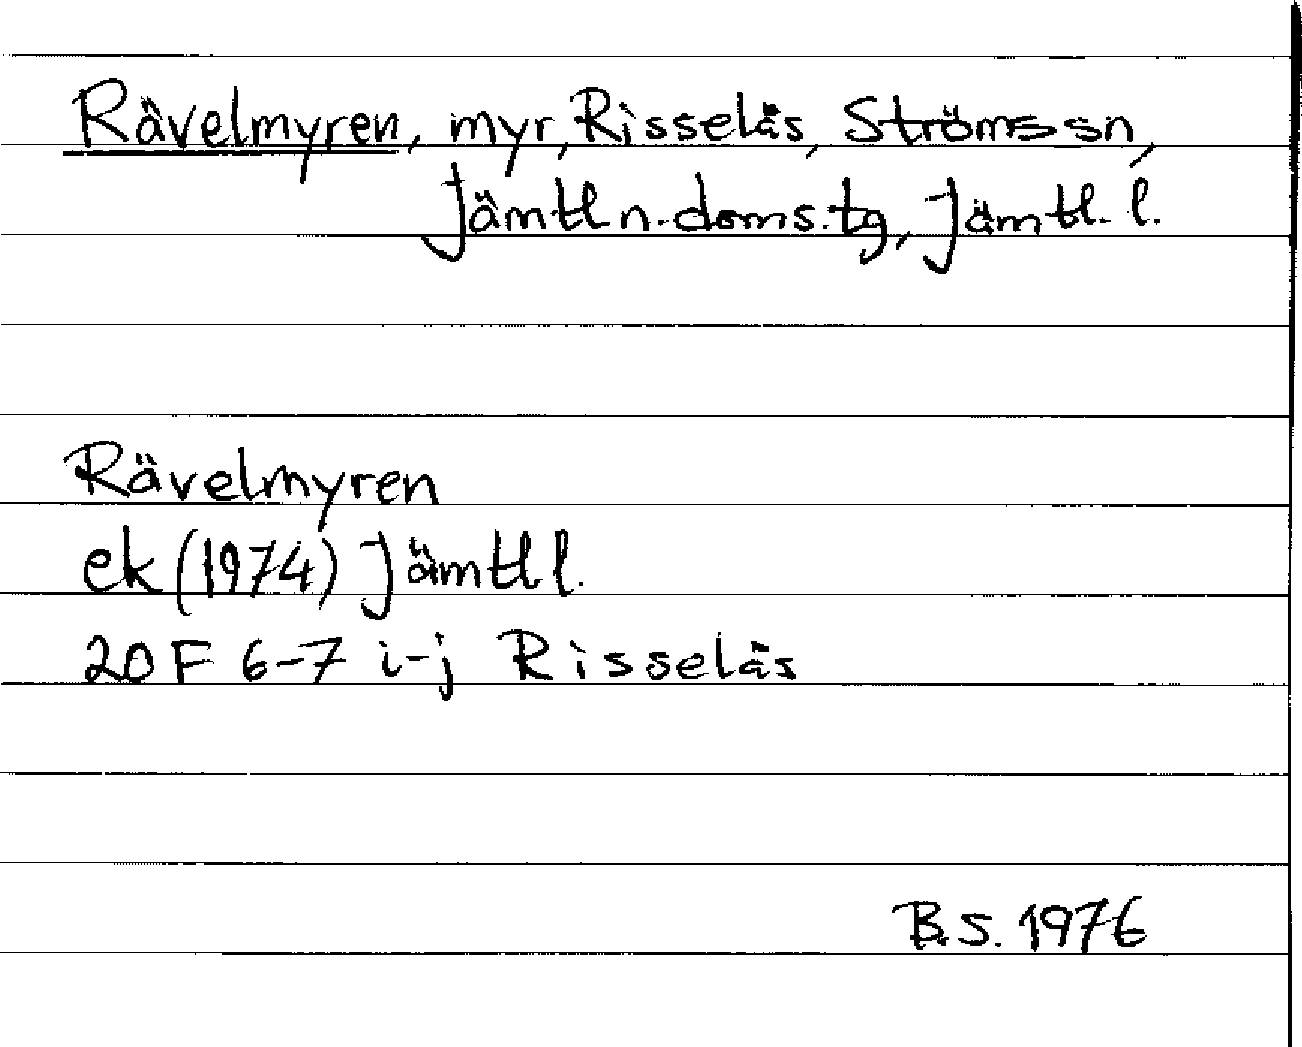 Rävelmyren, myr, Risselås, Ströms sn,
Jämtl n. doms. tg, Jämtl. l.
Rävelmyren
ek (1974) Jämtl l.
20 F 6-7 i-j Risselås
B.S. 1976